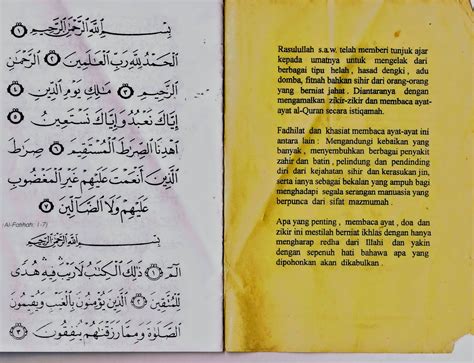 بِسْمِ اللَّهِ الرَّحْمَٰنِ الرَّحِيمِ ۝١
الْحَمْدُ لِلَّهِ رَبِّ الْعَالَمِينَ ۝٢ الرَّحْمَٰنِ
الرَّحِيمِ ۝٣ مَالِكِ يَوْمِ الدِّينِ ۝٤
إِيَّاكَ نَعْبُدُ وَإِيَّاكَ نَسْتَعِينُ ۝٥
اهْدِنَا الصِّرَاطَ الْمُسْتَقِيمَ ۝٦ صِرَاطَ
الَّذِينَ أَنْعَمْتَ عَلَيْهِمْ غَيْرِ الْمَغْضُوبِ
عَلَيْهِمْ وَلَا الضَّالِّينَ ۝٧
(Al-Fatihah: 1-7)
بِسْمِ اللَّهِ الرَّحْمَٰنِ الرَّحِيمِ
الٓمٓ ۝١ ذَٰلِكَ الْكِتَابُ لَا رَيْبَ فِيهِ هُدًى
لِلْمُتَّقِينَ ۝٢ الَّذِينَ يُؤْمِنُونَ بِالْغَيْبِ وَيُقِيمُونَ
الصَّلَاةَ وَمِمَّا رَزَقْنَاهُمْ يُنْفِقُونَ ۝٣
Rasulullah s.a.w. telah memberi tunjuk ajar
kepada umatnya untuk mengelak dari
berbagai tipu helah, hasad dengki, adu
domba, fitnah bahkan sihir dari orang-orang
yang berniat jahat. Diantaranya dengan
mengamalkan zikir-zikir dan membaca ayat-
ayat al-Quran secara istiqamah.
Fadhilat dan khasiat membaca ayat-ayat ini
antara lain : Mengandungi kebaikan yang
banyak , menyembuhkan berbagai penyakit
zahir dan batin , pelindung dan pendinding
diri dari kejahatan sihir dan kerasukan jin,
serta ianya sebagai bekalan yang ampuh bagi
menghadapi segala serangan manusia yang
berpunca dari sifat mazmumah .
Apa yang penting , membaca ayat , doa dan
zikir ini mestilah berniat ikhlas dengan hanya
mengharap redha dari Illahi dan yakin
dengan sepenuh hati bahawa apa yang
dipohonkan akan dikabulkan .